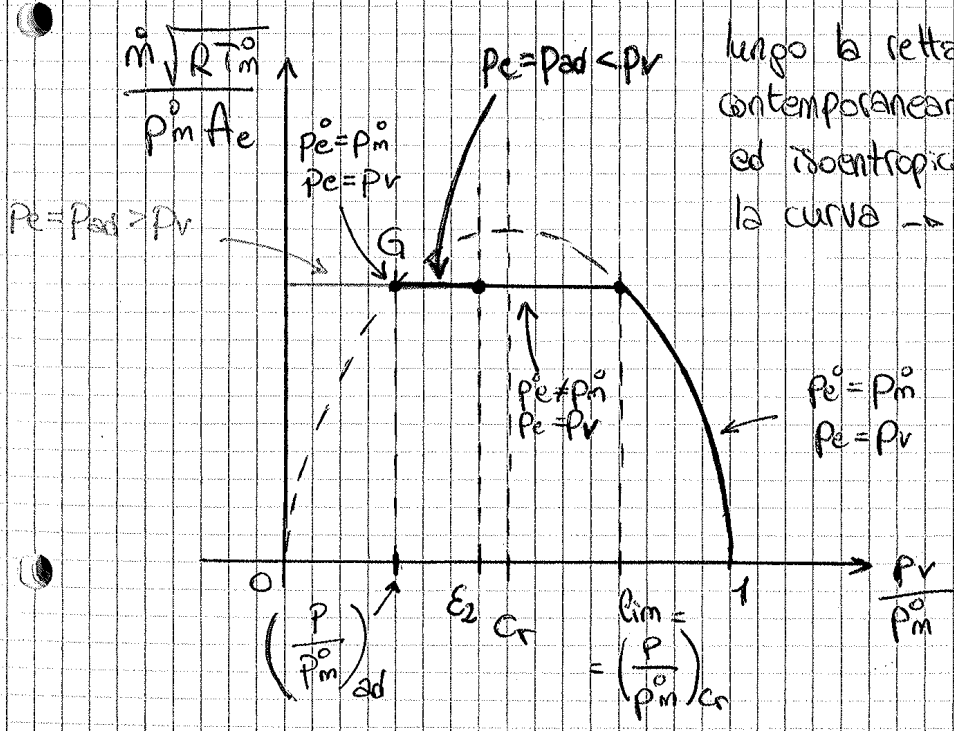 ṁ √(R T°m)
p°m Ae
pe = pad < pv
lungo la retta
contemporanear
ed isoentropic
la curva →
p°e = p°m
pe = pv
pe = pad > pv
G
p°e ≠ p°m
pe = pv
p°e = p°m
pe = pv
0
(p / p°m)ad
ε2
Cr
lim =
= (p / p°m)cr
1
pv / p°m